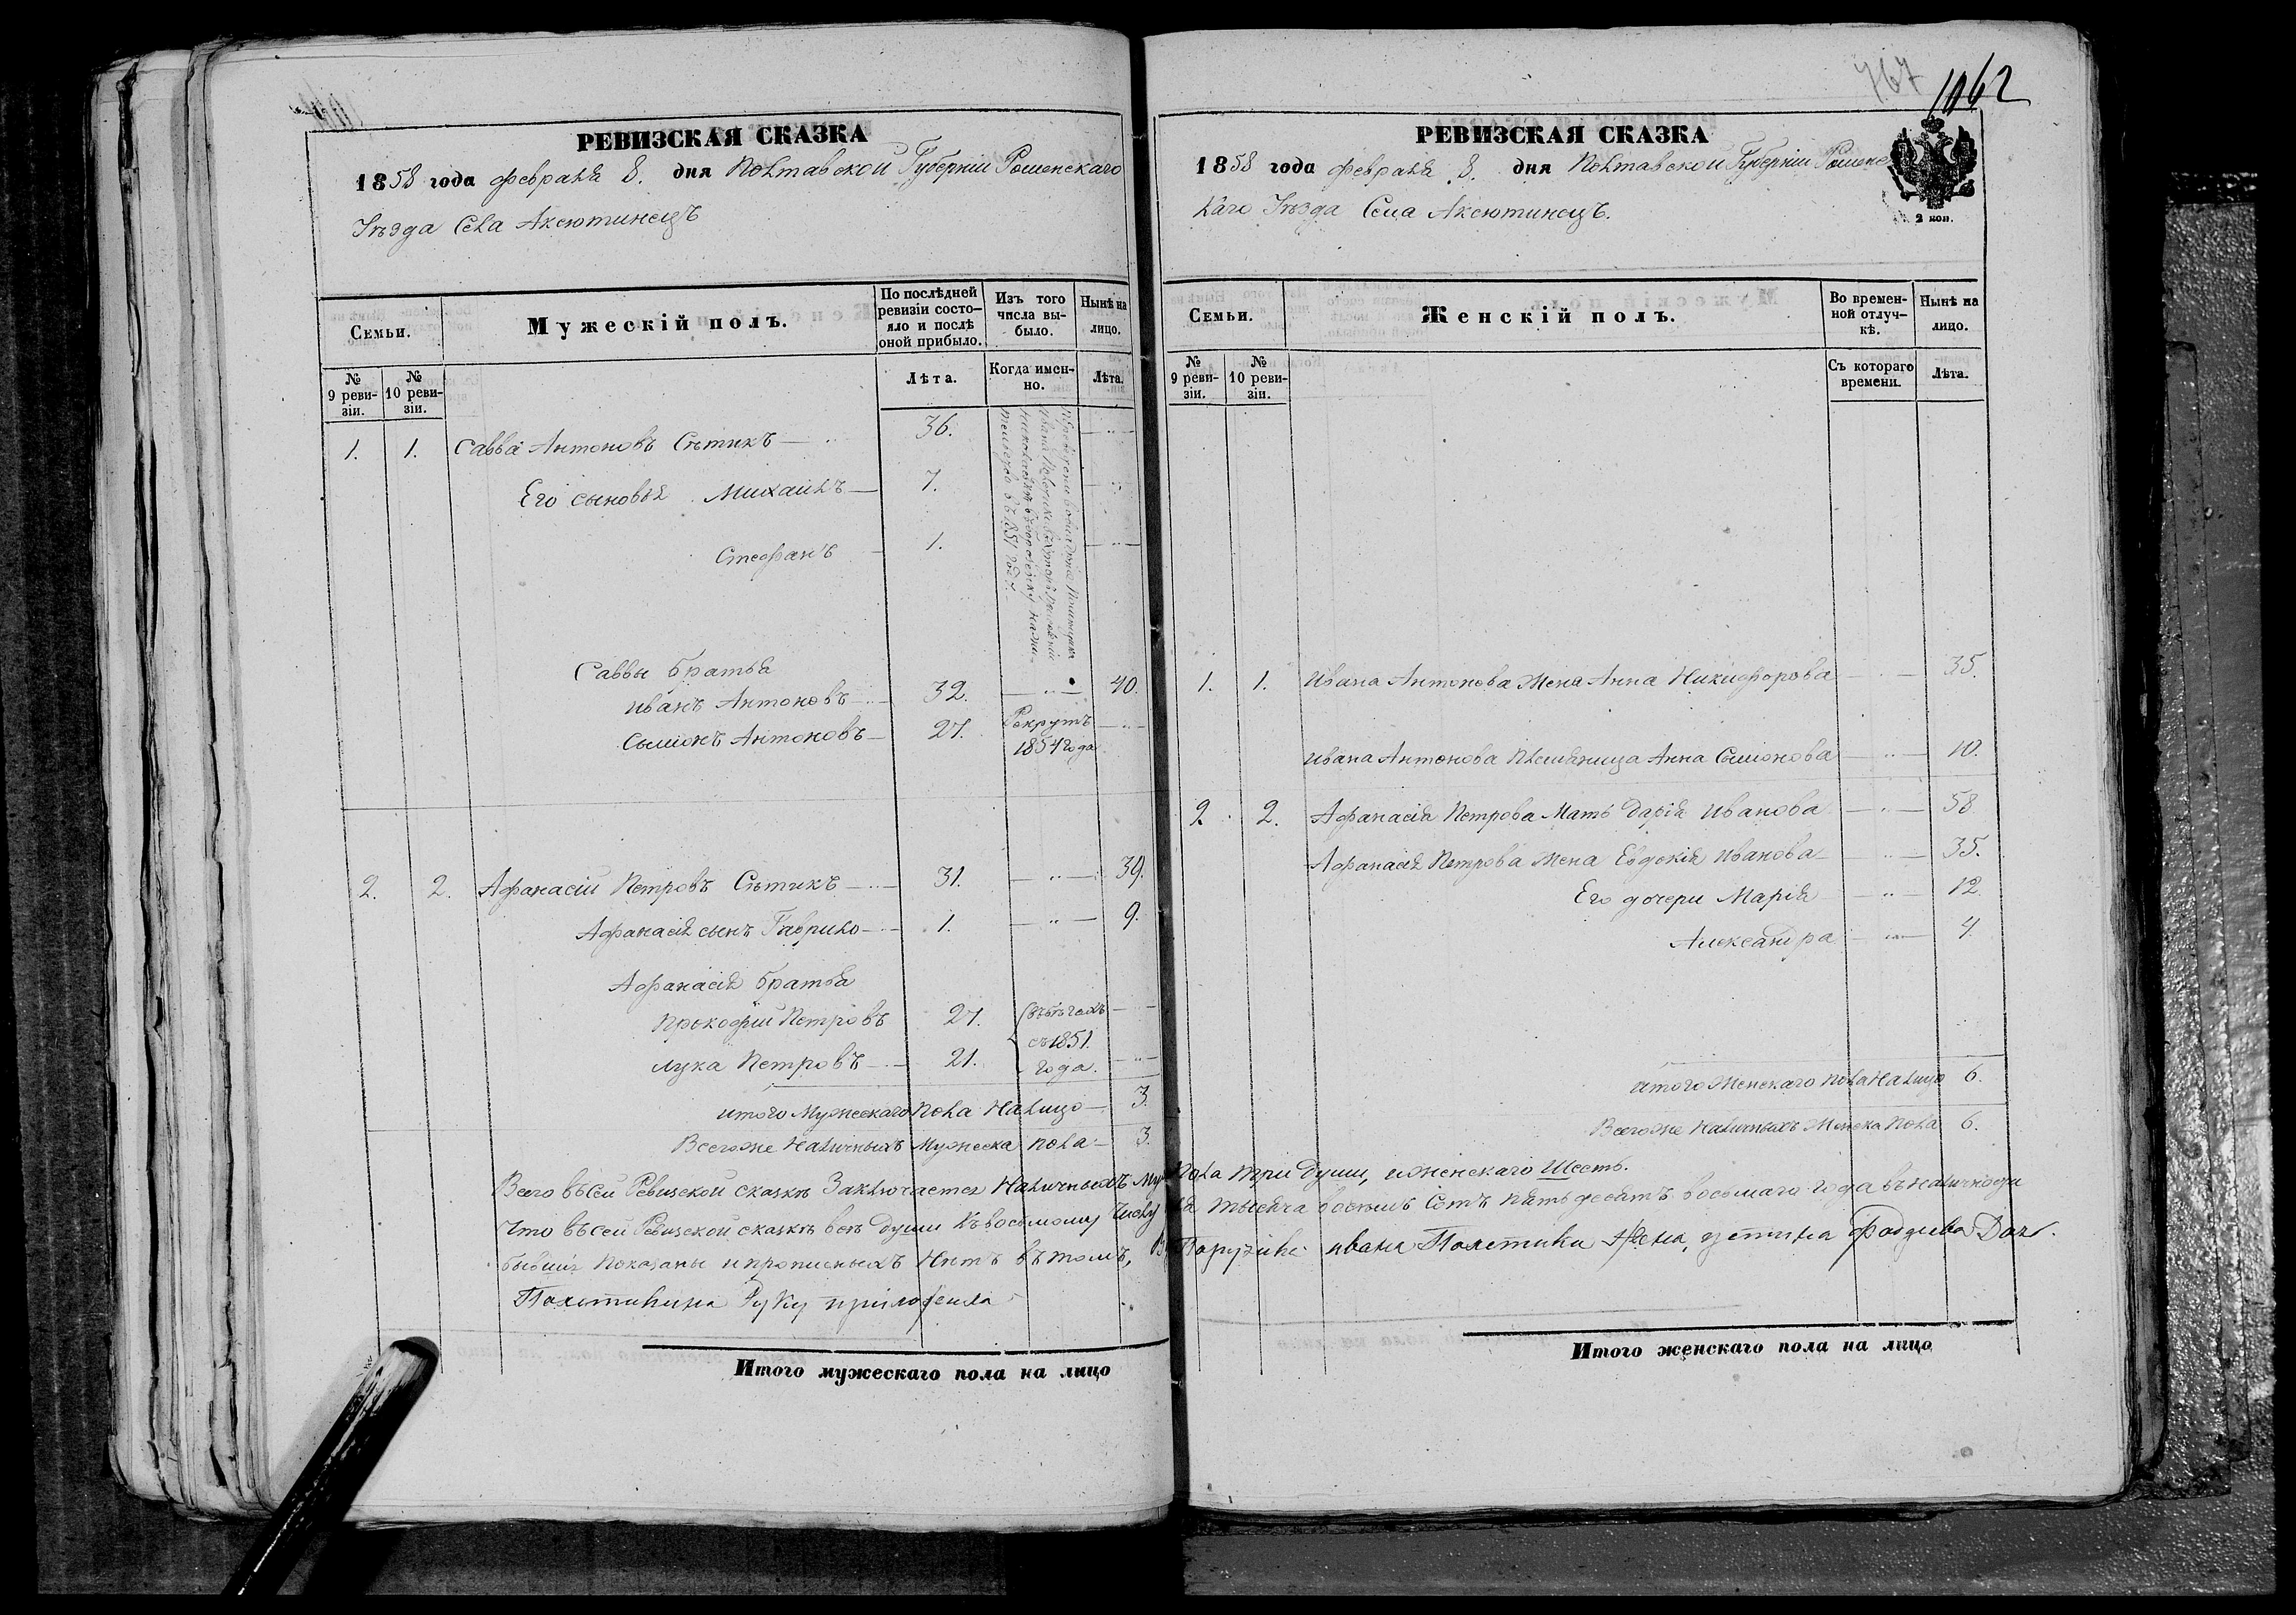 РЕВИЗСКАЯ СКАЗКА
1858 года февраля 8. дня Полтавской Губерніи Роменскаго
Уѣзда Села Аксютинецъ
Семьи.
Мужескій полъ.
По послѣдней ревизіи состояло и послѣ оной прибыло.
Изъ того числа выбыло.
Нынѣ на лицо.
№ 9 ревизіи.
№ 10 ревизіи.
Лѣта.
Когда именно.
Лѣта.
1. 1. Савва Антоновъ Сытикъ — 36. — " —
Его сыновья Михаилъ — 7. — " —
Стефанъ — 1. — " —
въ 1851 году.
Саввы братья
Иванъ Антоновъ — " — 32. — " — 40.
Сымонъ Антоновъ — 27. Рекрутъ — " —
1854 года
2. 2. Афанасій Петровъ Сытикъ — " — 31. — " — 39.
Афанасія сынъ Гаврило — " — 1. — " — 9.
Афанасія братья
Прокофій Петровъ 27. въ бѣгахъ — " —
съ 1851.
Лука Петровъ — " — 21. года. — " —
итого Мужескаго пола Налицо — 3.
Всего же Наличныхъ Мужеска пола — 3.
767
1062
РЕВИЗСКАЯ СКАЗКА
1858 года февраля 8. дня Полтавской Губерніи Роменс
каго Уѣзда Села Аксютинецъ.
2 коп.
Семьи.
Женскій полъ.
Во временной отлучкѣ.
Нынѣ на лицо.
№ 9 ревизіи.
№ 10 ревизіи.
Съ котораго времени.
Лѣта.
1. 1. Ивана Антонова Жена Анна Никифорова — " — 35.
Ивана Антонова Племяница Анна Сымонова — " — 10.
2. 2. Афанасія Петрова Мать Дарія Иванова — " — 58
Афанасія Петрова Жена Евдокія Иванова — " — 35.
Его дочери Марія — " — 12
Александра — " — 4.
итого Женскаго пола Налицо 6.
Всего же Наличныхъ Женска пола 6.
Всего въ сей Ревизской сказкѣ Заключается Наличныхъ Муж пола три души, и женскаго Шесть.
Что въ сей Ревизской сказкѣ всѣ души Къ восьмому Числу тысяча восемь Сотъ пять десятъ восьмаго года въ наличности
бывшія показаны и прописныхъ Нѣтъ въ томъ, Поручика Ивана Полетики Жена, устина фадѣива Доч.
Полетикина Руку приложила
Итого мужескаго пола на лицо
Итого женскаго пола на лицо